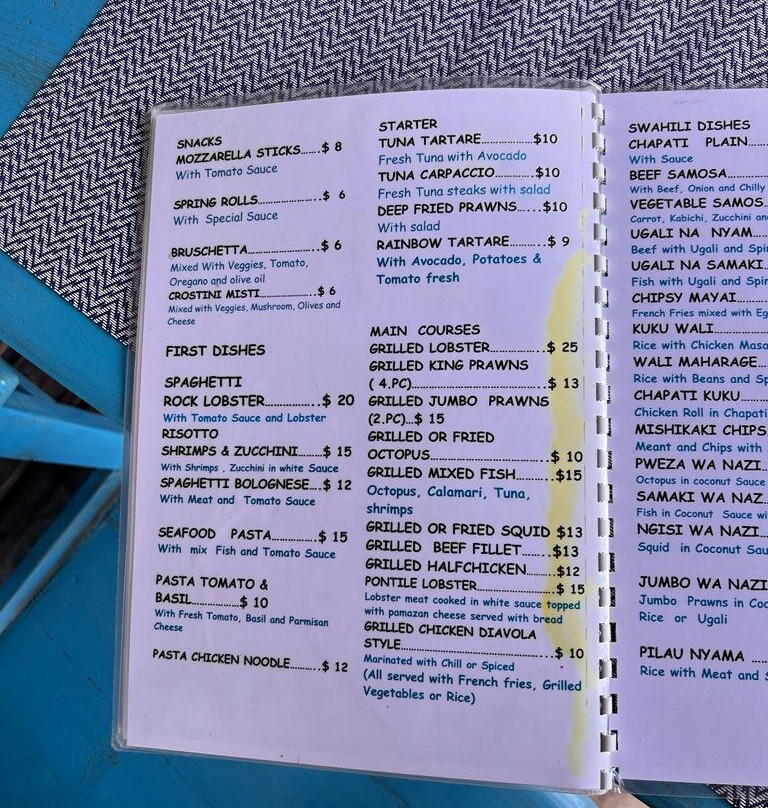 SNACKS
MOZZARELLA STICKS.......$ 8
With Tomato Sauce
SPRING ROLLS........................$ 6
With Special Sauce
BRUSCHETTA........................$ 6
Mixed With Veggies, Tomato,
Oregano and olive oil
CROSTINI MISTI..................$ 6
Mixed with Veggies, Mushroom, Olives and
Cheese
FIRST DISHES
SPAGHETTI
ROCK LOBSTER.................$ 20
With Tomato Sauce and Lobster
RISOTTO
SHRIMPS & ZUCCHINI.........$ 15
With Shrimps , Zucchini in white Sauce
SPAGHETTI BOLOGNESE....$ 12
With Meat and Tomato Sauce
SEAFOOD PASTA...............$ 15
With mix Fish and Tomato Sauce
PASTA TOMATO &
BASIL...............$ 10
With Fresh Tomato, Basil and Parmisan
Cheese
PASTA CHICKEN NOODLE..........$ 12
STARTER
TUNA TARTARE..................$10
Fresh Tuna with Avocado
TUNA CARPACCIO.............$10
Fresh Tuna steaks with salad
DEEP FRIED PRAWNS...$10
With salad
RAINBOW TARTARE..........$ 9
With Avocado, Potatoes &
Tomato fresh
MAIN COURSES
GRILLED LOBSTER...................$ 25
GRILLED KING PRAWNS
( 4.PC)...............................$ 13
GRILLED JUMBO PRAWNS
(2.PC)...$ 15
GRILLED OR FRIED
OCTOPUS............................$ 10
GRILLED MIXED FISH.........$15
Octopus, Calamari, Tuna,
shrimps
GRILLED OR FRIED SQUID $13
GRILLED BEEF FILLET.......$13
GRILLED HALFCHICKEN.......$12
PONTILE LOBSTER.....................$ 15
Lobster meat cooked in white sauce topped
with pamazan cheese served with bread
GRILLED CHICKEN DIAVOLA
STYLE.....................................$ 10
Marinated with Chill or Spiced
(All served with French fries, Grilled
Vegetables or Rice)
SWAHILI DISHES
CHAPATI PLAIN....
With Sauce
BEEF SAMOSA....
With Beef, Onion and Chilly
VEGETABLE SAMOS..
Carrot, Kabichi, Zucchini an
UGALI NA NYAM..
Beef with Ugali and Spi
UGALI NA SAMAKI..
Fish with Ugali and Spi
CHIPSY MAYAI....
French Fries mixed with Eg
KUKU WALI........
Rice with Chicken Masa
WALI MAHARAGE...
Rice with Beans and Sp
CHAPATI KUKU.....
Chicken Roll in Chapati
MISHIKAKI CHIPS
Meant and Chips with
PWEZA WA NAZI..
Octopus in coconut Sauce
SAMAKI WA NAZ..
Fish in Coconut Sauce wi
NGISI WA NAZI....
Squid in Coconut Sau
JUMBO WA NAZI
Jumbo Prawns in Coc
Rice or Ugali
PILAU NYAMA ....
Rice with Meat and S